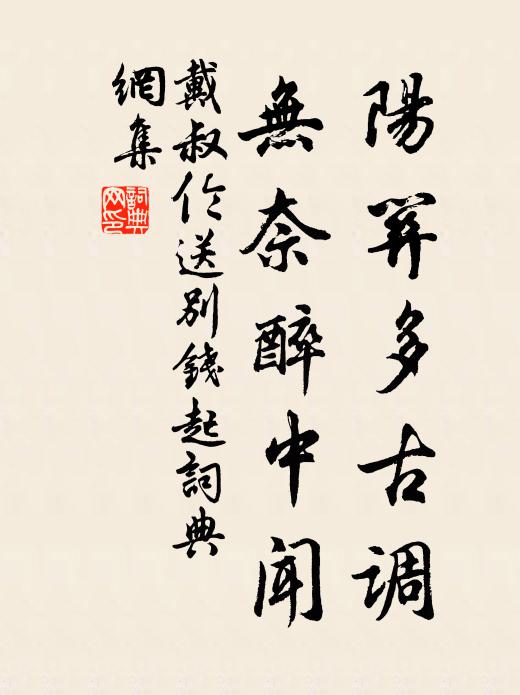 陽關多古調
無奈醉中聞
戴叔伦送别錢起詞典
網集
詞典
网印